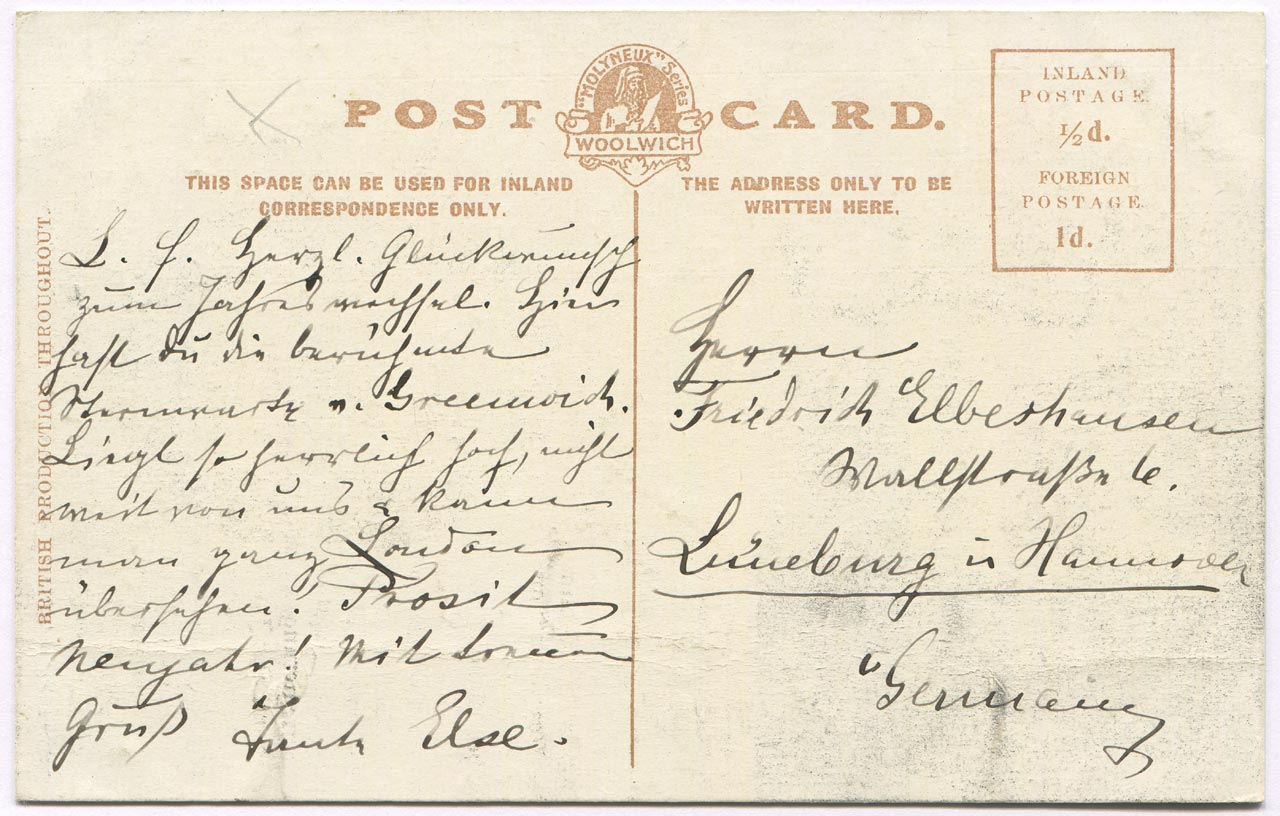 POST CARD.
"MOLYNEUX" Series
WOOLWICH
THIS SPACE CAN BE USED FOR INLAND
CORRESPONDENCE ONLY.
THE ADDRESS ONLY TO BE
WRITTEN HERE.
INLAND
POSTAGE
½d.
FOREIGN
POSTAGE
1d.
BRITISH PRODUCTION THROUGHOUT.
L. F. Herzl. Glückwunsch
zum Jahreswechsel. Hier
hast du die berühmte
Sternwarte v. Greenwich.
Liegt so herrlich hoch, nicht
weit von uns & kann
man ganz London
übersehen. Prosit
Neujahr! Mit treuem
Gruß Tante Else.
Herrn
Friedrich Elbeshausen
Wallstraße 6.
Lüneburg i. Hannover
Germany